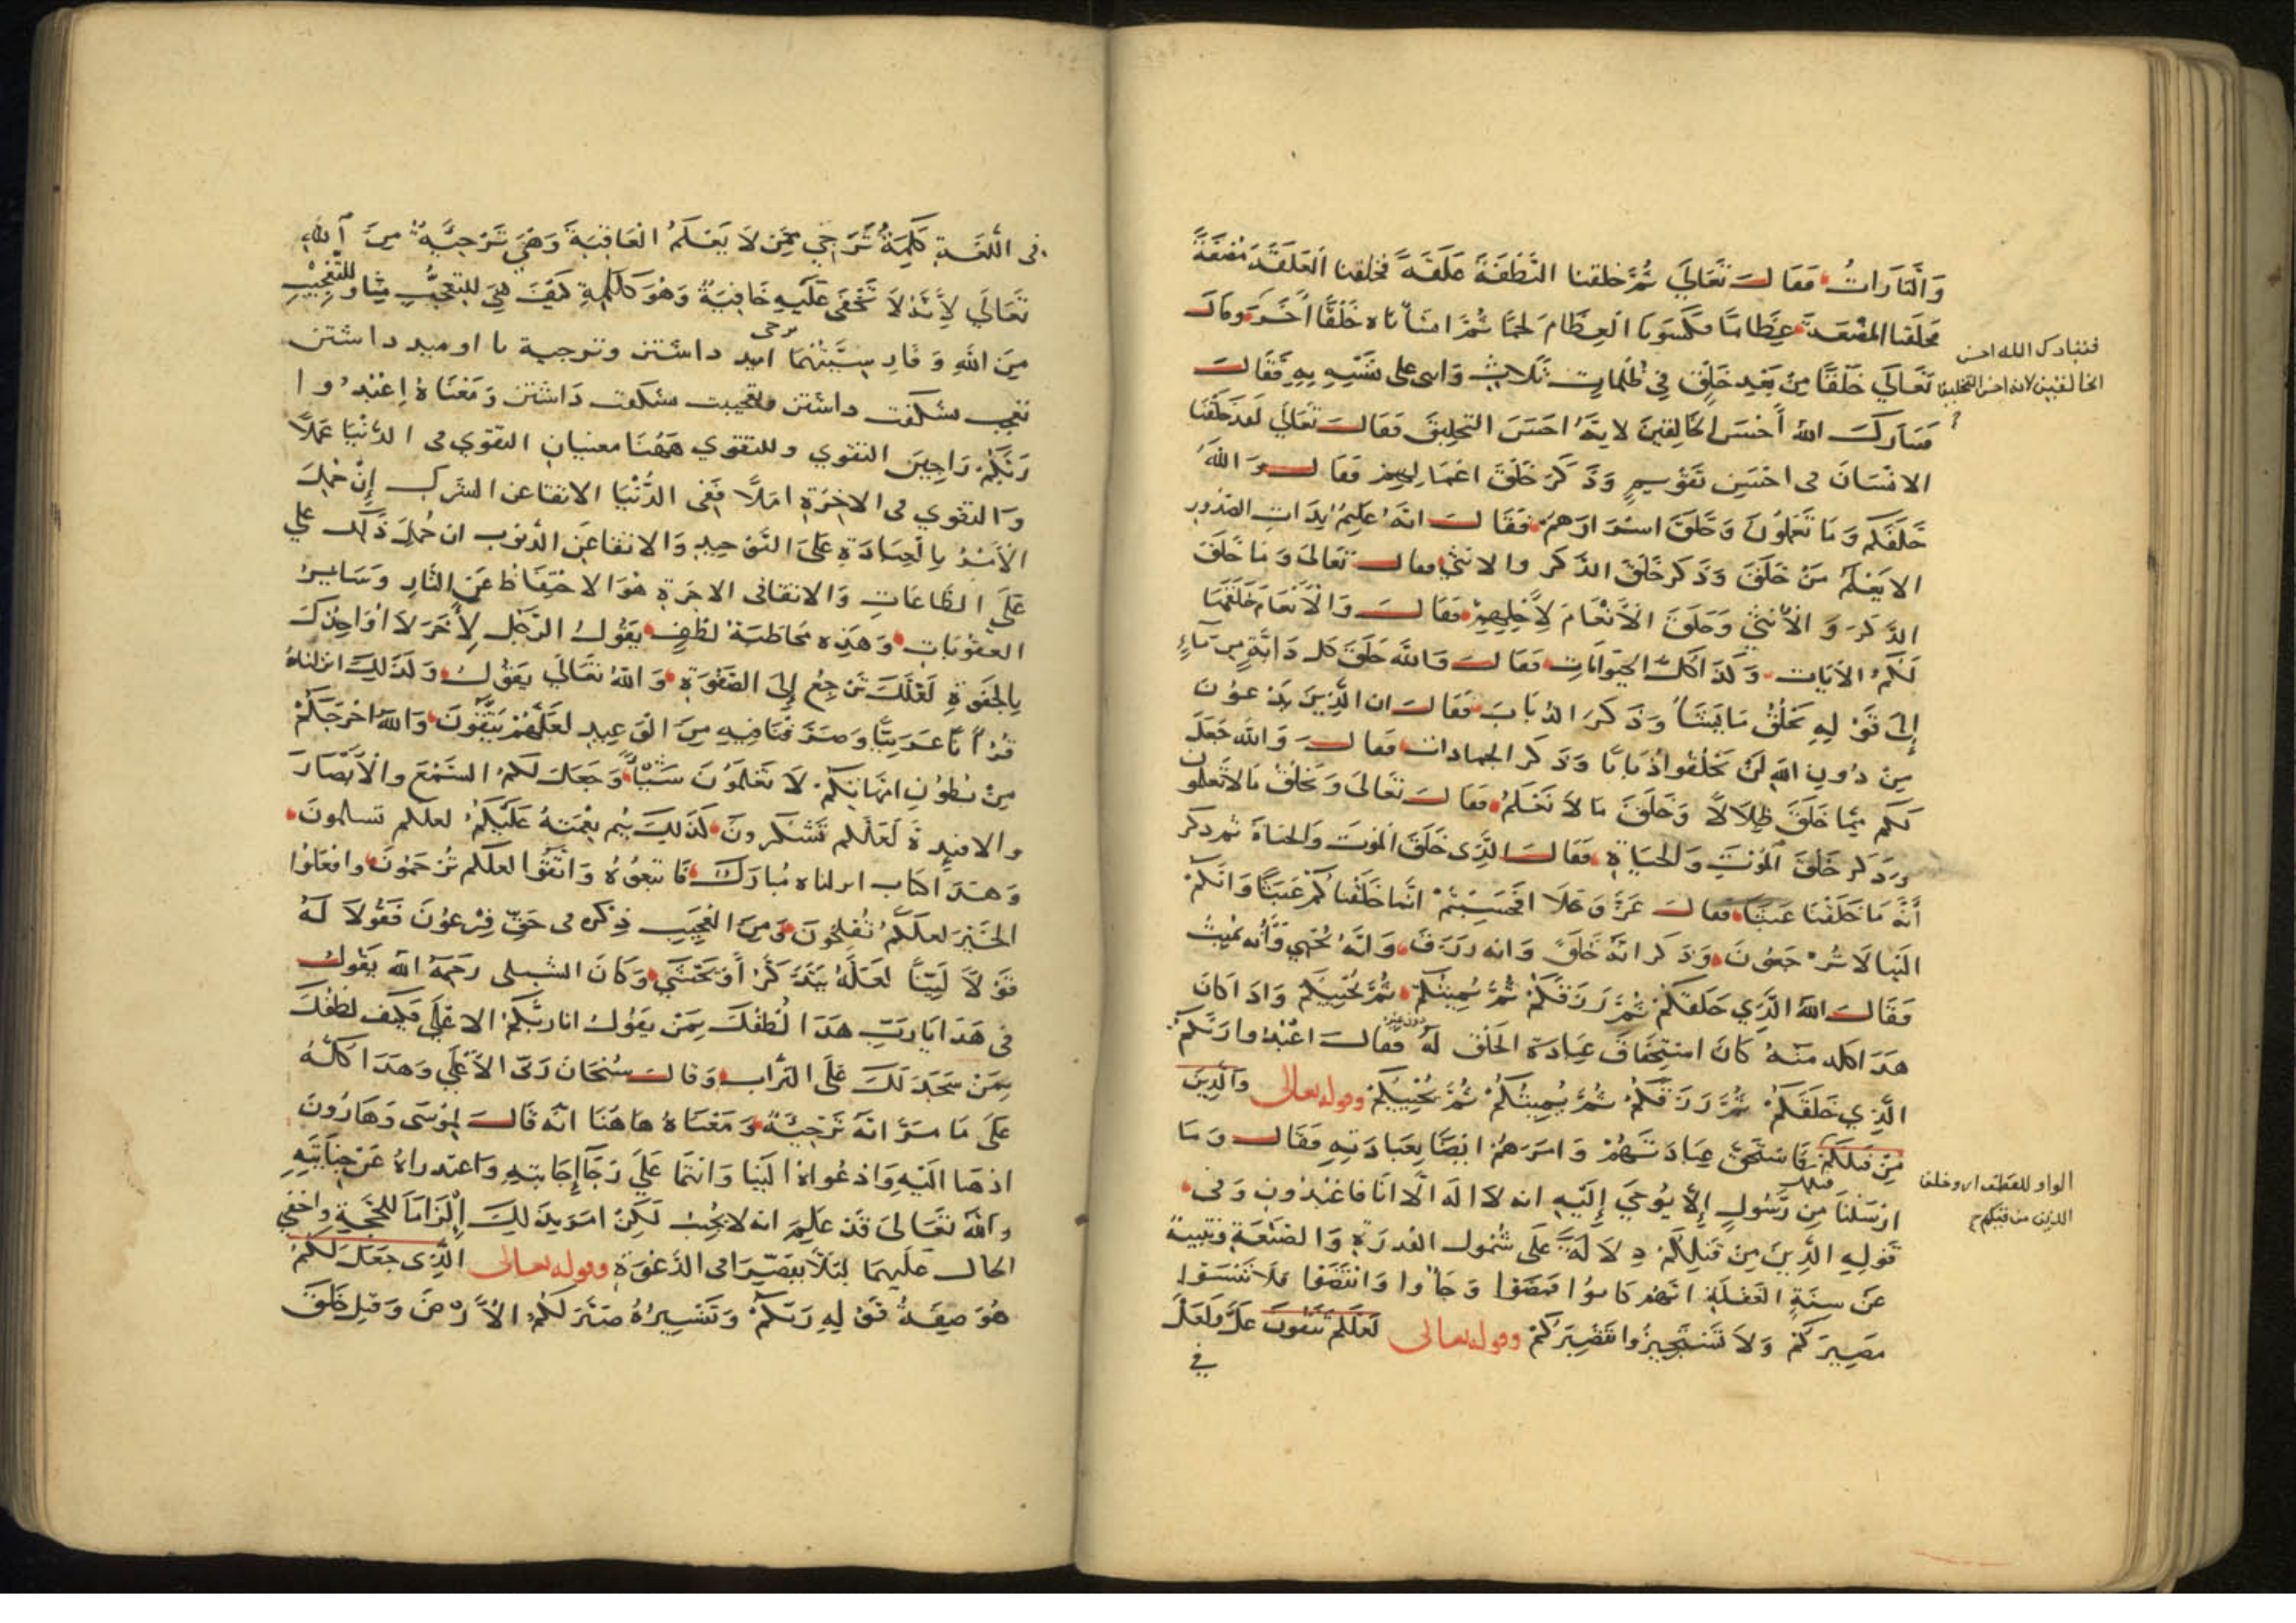 وَالتَّارَاتُ فَقَالَ تَعَالَى ثُمَّ خلقنا النُّطْفَةَ عَلَقَةً فخلقنا العَلَقَةَ مُضْغَةً
فخلقنا المضغة عِظَامًا فكسونا العِظَامَ لحمًا ثُمَّ انشأناه خَلْقًا آخَرَ وقال
تَعَالَى خَلْقًا مِنْ بَعْدِ خَلْقٍ فِي ظُلُمَاتٍ ثَلَاثٍ واثنى على نَفْسِهِ بِهِ فَقَالَ
فتبارك اللهُ أَحْسَنُ الخَالِقِينَ لانه احسن التخليق فقال تَعَالَى لَقَد خَلَقْنَا
الانْسَانَ فى احْسَنِ تَقْوِيمٍ وَذَكَرَ خَلْقَ اعْمَالِهِمْ فَقَالَ وَاللهُ
خَلَقَكُمْ وَمَا تَعْمَلُونَ وَخَلْقَ اسْرَارِهِمْ فَقَالَ انَّهُ عَلِيمٌ بِذَاتِ الصُّدُورِ
الا يَعْلَمُ مَنْ خَلَقَ وَذَكَر خَلْقَ الذَّكَرِ والانثى فقال تَعَالَى وَمَا خَلَقَ
الذَّكَرَ وَالأُنْثَى وَخَلَقَ الأَنْعَامَ لِأَجْلِهِمْ فَقَالَ وَالأَنْعَامَ خَلَقَهَا
لَكُمْ الآيَات وَكَذَا كُلّ الحَيَوَانَاتِ فَقَالَ وَاللهُ خَلَقَ كل دَابَّةٍ مِن مَاءٍ
إِلَى قَوْلِهِ يَخْلُقُ مَا يَشَاءُ وَذَكَرَ الذُّبَابَ فَقَالَ ان الَّذِينَ تَدْعُونَ
مِنْ دُونِ اللهِ لَنْ يَخْلُقُوا ذُبَابًا وَذَكَر الجمادات فقال وَاللهُ جَعَلَ
لَكُمْ مِمَّا خَلَقَ ظِلَالًا وَخَلَقَ مَا لَا نَعْلَمُ فقال تَعَالَى وَيَخْلُقُ مَا لَا تَعْلَمُون
وَذَكَر خَلْقَ المَوْتِ وَالحَيَاةِ فَقَالَ الَّذِى خَلَقَ المَوْتَ وَالحَيَاةَ ثم ذكر
أَنَّهُ مَا خَلَقْنَا عَبَثًا فَقَالَ عَزَّ وَعَلَا افَحَسِبْتُمْ انَّمَا خَلَقْنَاكُمْ عَبَثًا وَانَّكُمْ
الَيْنَا لَا تُرْجَعُونَ وَذَكَر انَّهُ خَلَقَ وَانه رَزَقَ وَانَّهُ يُحْيِي وَأنه يُمِيتُ
فَقَالَ اللهُ الَّذِي خَلَقَكُمْ ثُمَّ رَزَقَكُمْ ثُمَّ يُمِيتُكُمْ ثُمَّ يُحْيِيكُمْ وَاذَا كَانَ
هَذَا كله مِنْهُ كَانَ اسْتِحْقَاقَ عِبَادَةِ الخَلْقِ لَهُ دون غيره فَقَالَ اعْبُدُوا رَبَّكُمْ
الَّذِي خَلَقَكُمْ ثُمَّ رَزَقَكُمْ ثُمَّ يُمِيتُكُمْ ثُمَّ يُحْيِيكُمْ وقوله تعالى وَالَّذِينَ
مِنْ قَبْلِكُمْ فَاسْتَحَقَّ عِبَادَتَهُمْ وَامَرَهُمْ ايْضًا بِعِبَادَتِهِ فَقَالَ وَمَا
ارْسَلْنَا مِن قبلك رَسُولٍ إِلَّا يُوحَى إِلَيْهِ انه لَا الَهَ الَّا انَا فَاعْبُدُونِ وَفى
قَوْلِهِ الَّذِينَ مِنْ قَبْلِكُمْ دِلَالَةٌ عَلَى شُمُولِ القُدرَةِ وَالصَّنْعَةِ وتنبيهٌ
عَنْ سِنَةِ الغَفْلَةِ انَّهُمْ كَانوُا فَمَضَوْا وَجَاؤُا وَانْقَضَوْا فلَا تَنْسَوْا
مَصِيرَكُمْ وَلَا تَسْتَجِيزُوا تَقْصِيرَكُمْ وقوله تعالى لَعَلَّكُمْ تَتَّقُونَ عَلَّ وَلَعَلَّ
في
فتبارك الله احسن
الخالقين لانه احسن التخليق
الواو للعطف اى وخلق
الذين من قبلكم
فى اللُّغَةِ كَلِمَةُ تَرَجٍّ مِمَّنْ لَا يَعْلَمُ العَاقِبَةَ وَهِيَ تَرْجِيَةٌ مِنَ اللهِ
تَعَالَى لِأَنَّهُ لَا تَخْفَى عَلَيْهِ خَافِيَةٌ وَهُوَ كَكَلِمَةِ كَيْفَ هِيَ لِلتَّعَجُّبِ مِنَّا وللتَّعْجِيبِ
مِنَ اللهِ وَفَارِسِيَّتُهُمَا ترجى اميد داشتن وترجية با اوميد داشتن
تعجب شكفت داشتن وتعجيب شكفت دَاشتن وَمَعْنَاهُ اعْبُدُوا
رَبَّكُمْ رَاجِينَ التقوي وللتقوي هَهُنَا معنيان التقوى فى الدُّنْيَا عَمَلًا
وَالتقوي فى الاخِرَةِ امَلًا فَفِى الدُّنْيَا الاتقا عن الشرك إِنْ حُمِلَ
الأَمْرُ بِالعِبَادَةِ عَلَى التَّوْحِيدِ وَالاتقا عَنِ الذنوب ان حُمِلَ ذَلك علي
عَلَى الطَّاعَاتِ وَالاتقا فى الاخِرَةِ هُوَ الاحْتِفَاظُ عَنِ النَّارِ وَسَايِرِ
العُقُوبَاتِ وَهَذِه مُخَاطَبَةُ لُطْفٍ يَقُولُ الرَّجُلِ لِأَخَرَ لَا اؤَاخِذُكَ
بِالجَفْوَةِ لَعَلَّكَ تَرْجِعُ إِلَى الصَّفْوَةِ وَاللهُ تَعَالَى يَقُولُ وَكَذَلِكَ انزلناهُ
قُرْآنًا عَرَبِيًّا وَصَرَّفْنَا فِيهِ مِنَ الوَعِيدِ لَعَلَّهُمْ يَتَّقُونَ وَاللهُ اخْرَجَكُمْ
مِنْ بُطُونِ امَّهَاتِكُمْ لَا تَعْلَمُونَ شَيْئًا وَجَعَلَ لَكُمُ السَّمْعَ وَالأَبْصَارَ
والافئِدةَ لَعَلَّكم تَشْكُرونَ كَذَلِكَ يُتِم نِعْمَتَهُ عَلَيْكُمْ لعلكم تسلمون
وَهَذَا كتاب انزلناه مُبَارَكٌ فَاتبعُوهُ وَاتَّقُوا لعلكم تُرْحَمُونَ وافْعَلُوا
الخَيْرَ لعلكُمْ تُفْلِحُونَ وَمِنَ العَجِيبِ ذِكْره فى حَقِّ فِرْعَوْنَ فَقُولَا لَهُ
قَوْلًا لَيِّنًا لَعَلَّهُ يَتَذَكَّرُ أَوْ يَخْشَى وَكَانَ الشبلى رَحِمَهُ اللهُ يَقُولُ
فى هَذَا يَا رَبِّ هَذَا لُطْفُكَ بِمَنْ يَقُولُ انا رَبُّكُمُ الاعْلَى فكيف لُطْفُكَ
بِمَنْ سَجَدَ لَكَ عَلَى التراب وَقَالَ سُبْحَانَ رَبِّىَ الأَعْلَى وَهَذَا كُلُّهُ
عَلَى مَا مَرَّ انَّهُ تَرْجِيَةٌ وَمَعْنَاهُ هَاهُنَا انَّهُ قَالَ لِمُوسَى وَهَارُونَ
اذهَبَا الَيْهِ وَادْعُوَاهُ الَيْنَا وَانتُمَا عَلَى رَجَاءِ إِجَابَتِهِ وَاعتذراهُ عَنْ جِنَايَتِهِ
وَاللهُ تَعَالَى قَد عَلِمَ انه لا يُجِيبُ لَكِنْ امَرَ بِذَلِكَ إِلْزَامًا لِلحُجَّةِ واخفي
الحال عَلَيْهِمَا لِئَلَّا يقصرا فى الدَّعْوَةِ وقوله تعالى الَّذِى جَعَلَ لَكُمُ
هُوَ صِفَةُ قَوْلِهِ رَبَّكُمْ وَتَفْسِيرُهُ صَيَّرَ لَكُمُ الأَرْضَ وَقِيلَ خَلَقَ